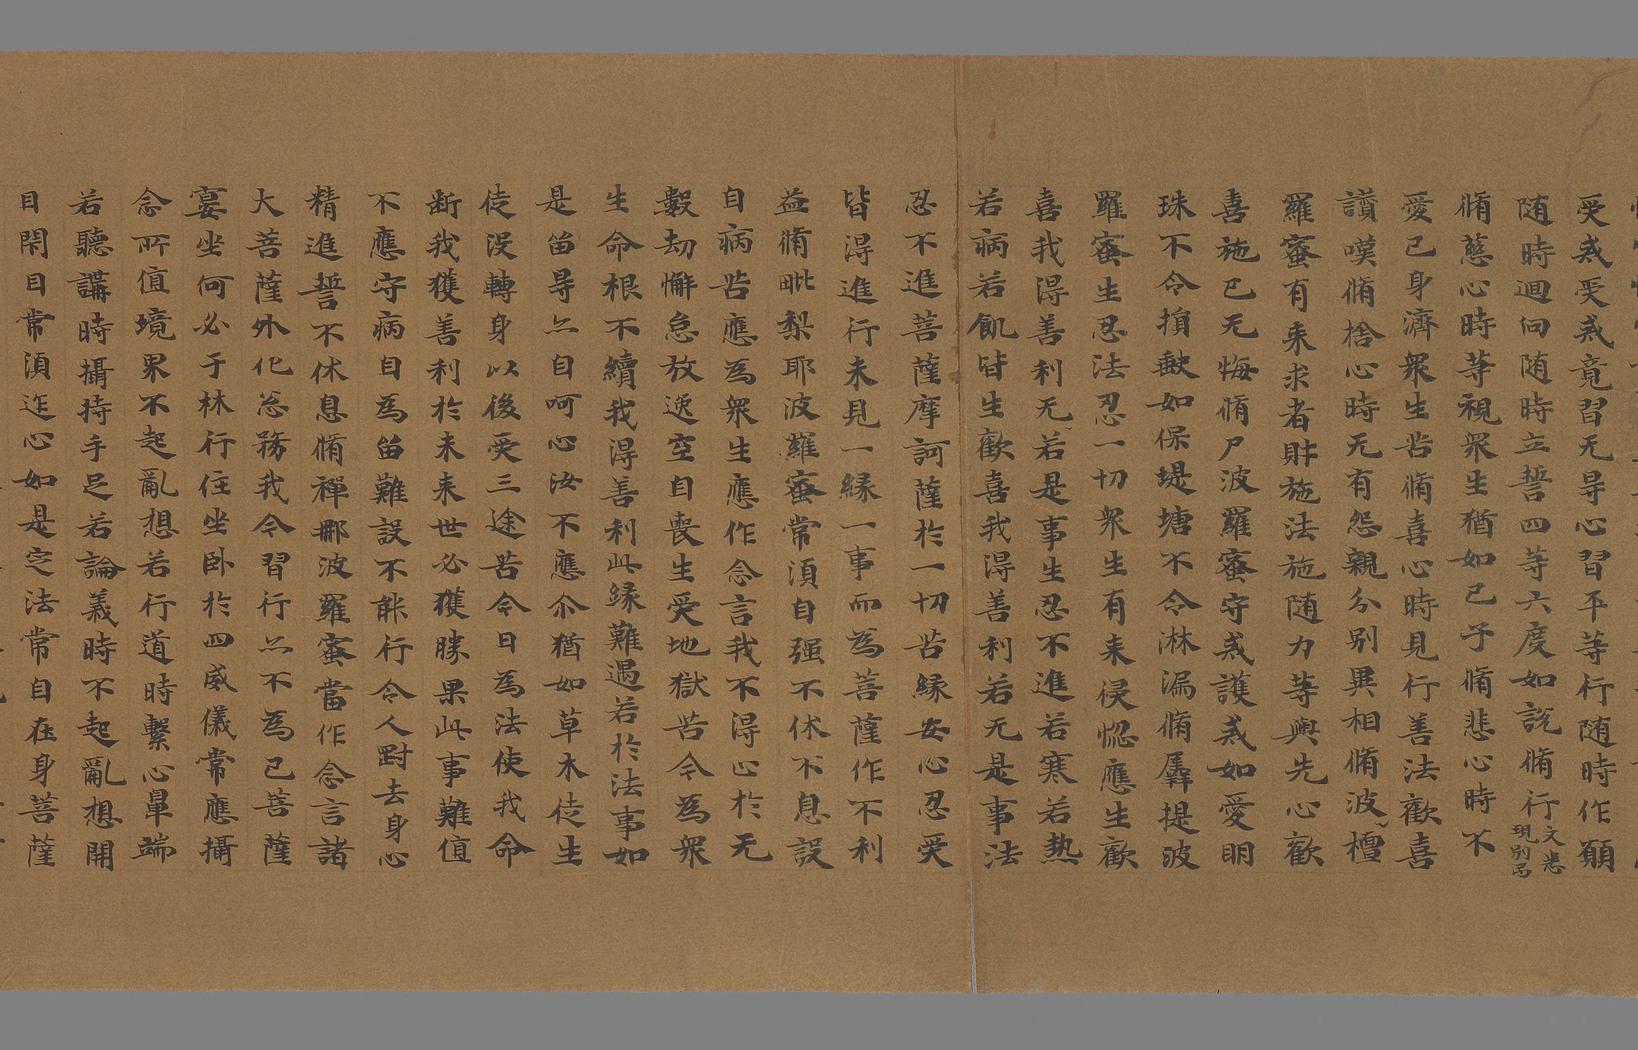 受戒受戒竟習无㝵心習平等行随時作願
随時迴向随時立誓四等六度如說脩行文悉現別局
脩慈心時等視衆生猶如己子脩悲心時不
愛己身濟衆生苦脩喜心時見行善法歡喜
讃嘆脩捨心時无有怨親分別異相脩波檀
羅蜜有来求者財施法施随力等與先心歡
喜施已无悔脩尸波羅蜜守戒護戒如愛明
珠不令損㱠如保堤塘不令淋漏脩羼提波
羅蜜生忍法忍一切衆生有来侵惱應生歡
喜我得善利无若是事生忍不進若寒若熱
若病若飢皆生歡喜我得善利若无是事法
忍不進菩薩摩訶薩於一切苦緣安心忍受
皆得進行未見一緣一事而為菩薩作不利
益脩毗梨耶波羅蜜常湏自强不休不息設
自病苦應為衆生應作念言我不得心於无
數劫懈怠放逸空自喪生受地獄苦今為衆
生命根不續我得善利此緣難遇若於法事如
是留㝵亦自呵心汝不應尒猶如草木徒生
徒没轉身以後受三途苦今日為法使我命
断我獲善利於未来世必獲勝果此事難值
不應守病自為留難設不能行令人對去身心
精進誓不休息脩禪那波羅蜜當作念言諸
大菩薩外化忩務我今習行亦不為已菩薩
宴坐何必于林行住坐卧於四威儀常應攝
念所值境界不起亂想若行道時繫心鼻端
若聽講時攝持手足若論義時不起亂想開
目閇目常湏迮心如是定法常自在身菩薩